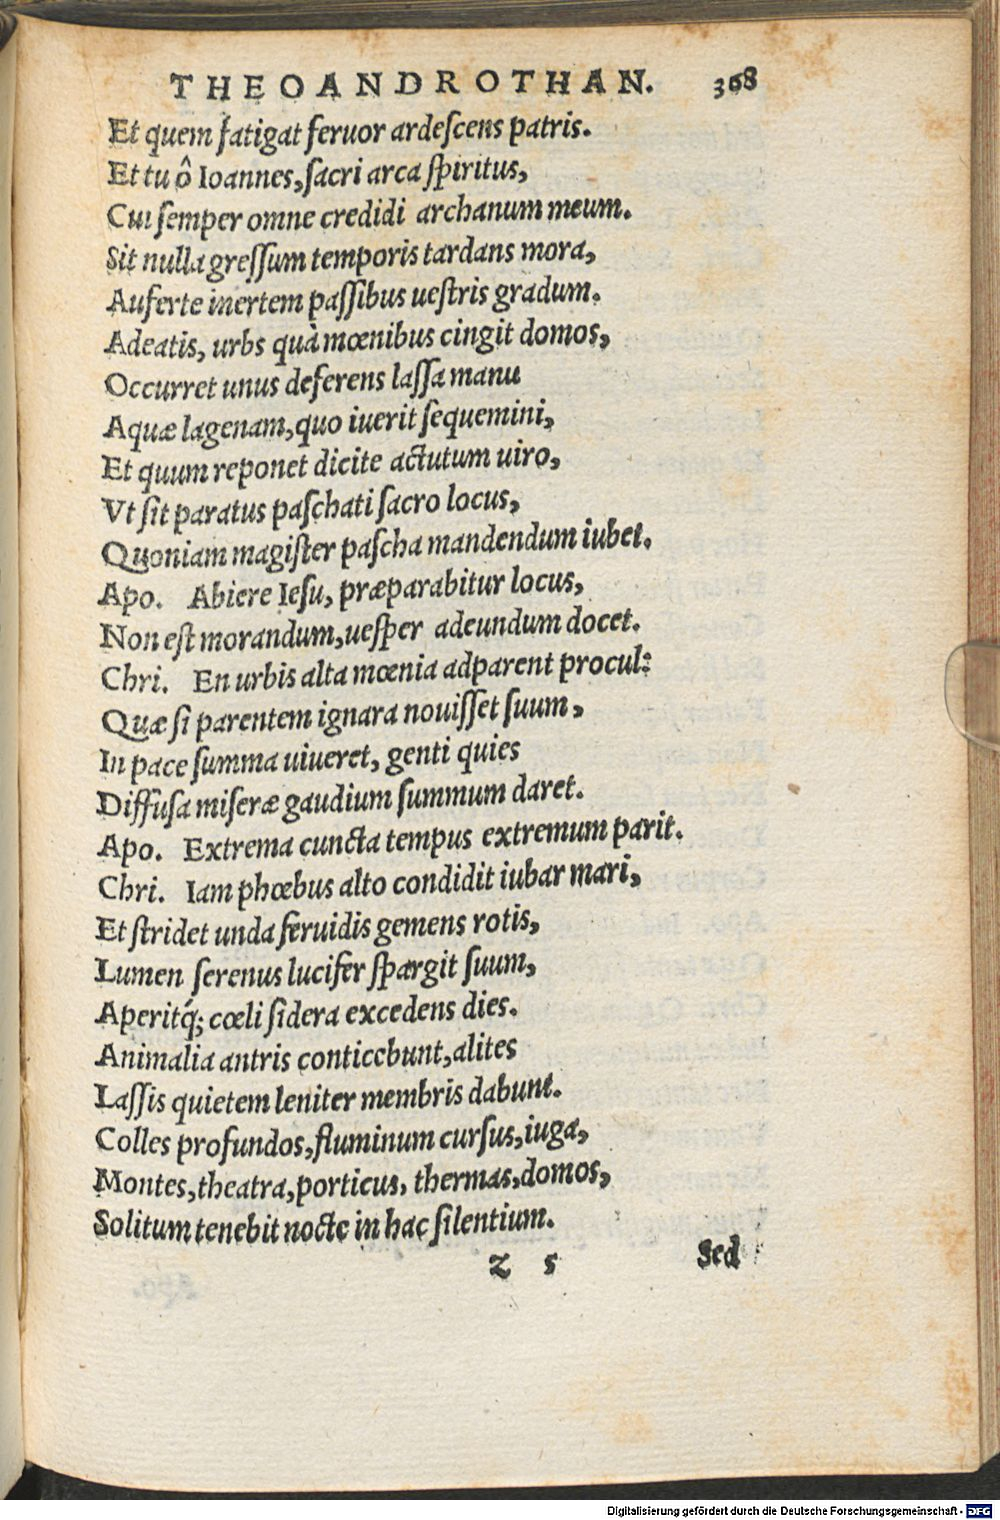 THEOANDROTHAN. 308
Et quem fatigat feruor ardeſcens patris.
Et tu ô Ioannes, ſacri arca ſpiritus,
Cui ſemper omne credidi archanum meum.
Sit nulla greſſum temporis tardans mora,
Auferte inertem paſſibus ueſtris gradum.
Adeatis, urbs quà mœnibus cingit domos,
Occurret unus deferens laſſa manu
Aquæ lagenam, quo iuerit ſequemini,
Et quum reponet dicite actutum uiro,
Vt ſit paratus paſchati ſacro locus,
Quoniam magiſter paſcha mandendum iubet.
Apo. Abiere Ieſu, præparabitur locus,
Non eſt morandum, ueſper adeundum docet.
Chri. En urbis alta mœnia adparent procul:
Quæ ſi parentem ignara nouiſſet ſuum,
In pace ſumma uiueret, genti quies
Diffuſa miſeræ gaudium ſummum daret.
Apo. Extrema cuncta tempus extremum parit.
Chri. Iam phœbus alto condidit iubar mari,
Et ſtridet unda feruidis gemens rotis,
Lumen ſerenus lucifer ſpargit ſuum,
Aperitq́; cœli ſidera excedens dies.
Animalia antris conticebunt, alites
Laſſis quietem leniter membris dabunt.
Colles profundos, fluminum curſus, iuga,
Montes, theatra, porticus, thermas, domos,
Solitum tenebit nocte in hac ſilentium.
Z 5 Sed
Digitalisierung gefördert durch die Deutsche Forschungsgemeinschaft - DFG